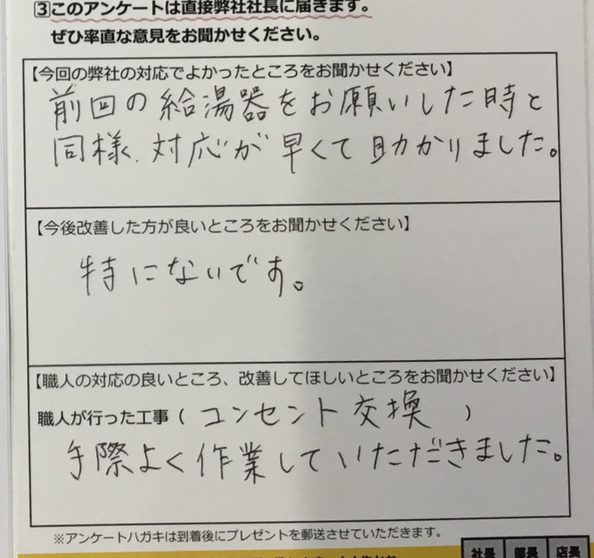 ③このアンケートは直接弊社社長に届きます。
ぜひ率直な意見をお聞かせください。
【今回の弊社の対応でよかったところをお聞かせください】
前回の給湯器をお願いした時と
同様、対応が早くて助かりました。
【今後改善した方が良いところをお聞かせください】
特にないです。
【職人の対応の良いところ、改善してほしいところをお聞かせください】
職人が行った工事（コンセント交換）
手際よく作業していただきました。
※アンケートハガキは到着後にプレゼントを郵送させていただきます。
社長 部長 店長